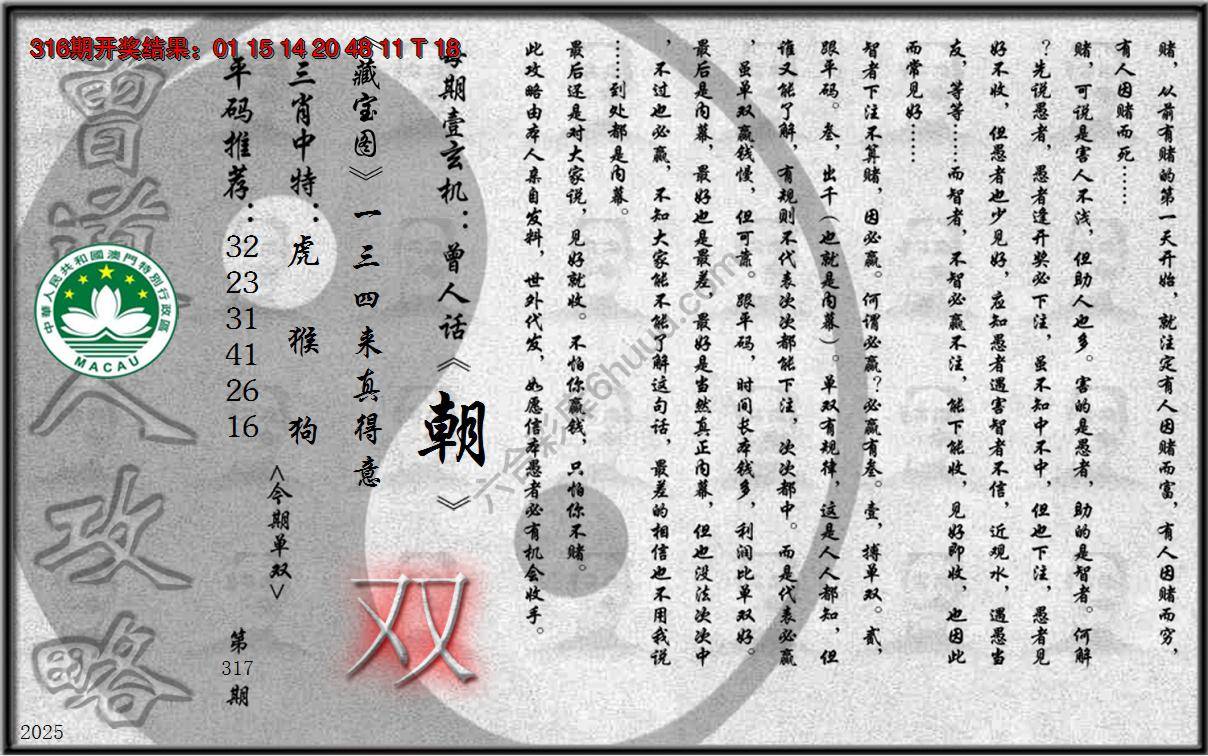 316期开奖结果：01 15 14 20 48 11 T 18
赌，从前有赌的第一天开始，就注定有人因赌而富，有人因赌而穷，
有人因赌而死……
赌，可说是害人不浅，但助人也多。害的是愚者，助的是智者。何解
？先说愚者，愚者逢开奖必下注，虽不知中不中，但也下注，愚者见
好不收，但愚者也少见好，应知愚者遇害智者不信，近观水，遇愚当
友，等等……而智者，不智必赢不注，能下能收，见好即收，也因此
而常见好……
智者下注不算赌，因必赢。何谓必赢？必赢有叁。壹，搏单双。贰，
跟平码。叁，出千（也就是内幕）。单双有规律，这是人人都知，但
谁又能了解，有规则不代表次次都能下注，次次都中。而是代表必赢
，虽单双赢钱慢，但可靠。跟平码，时间长本钱多，利润比单双好。
最后是内幕，最好也是最差，最好是当然真正内幕，但也没法次次中
，不过也必赢，不知大家能不能了解这句话，最差的相信也不用我说
……到处都是内幕。
最后还是对大家说，见好就收。不怕你赢钱，只怕你不赌。
此攻略由本人亲自发料，世外代发，如愿信本愚者必有机会收手。
每期壹玄机：曾人话《朝》
《藏宝图》一三四来真得意
三肖中特：虎 猴 狗
平码推荐：
32
23
31
41
26
16
<今期单双>
双
第
317
期
曾道人攻略
中華人民共和國澳門特別行政區
MACAU
六合彩库6huuu.com
2025